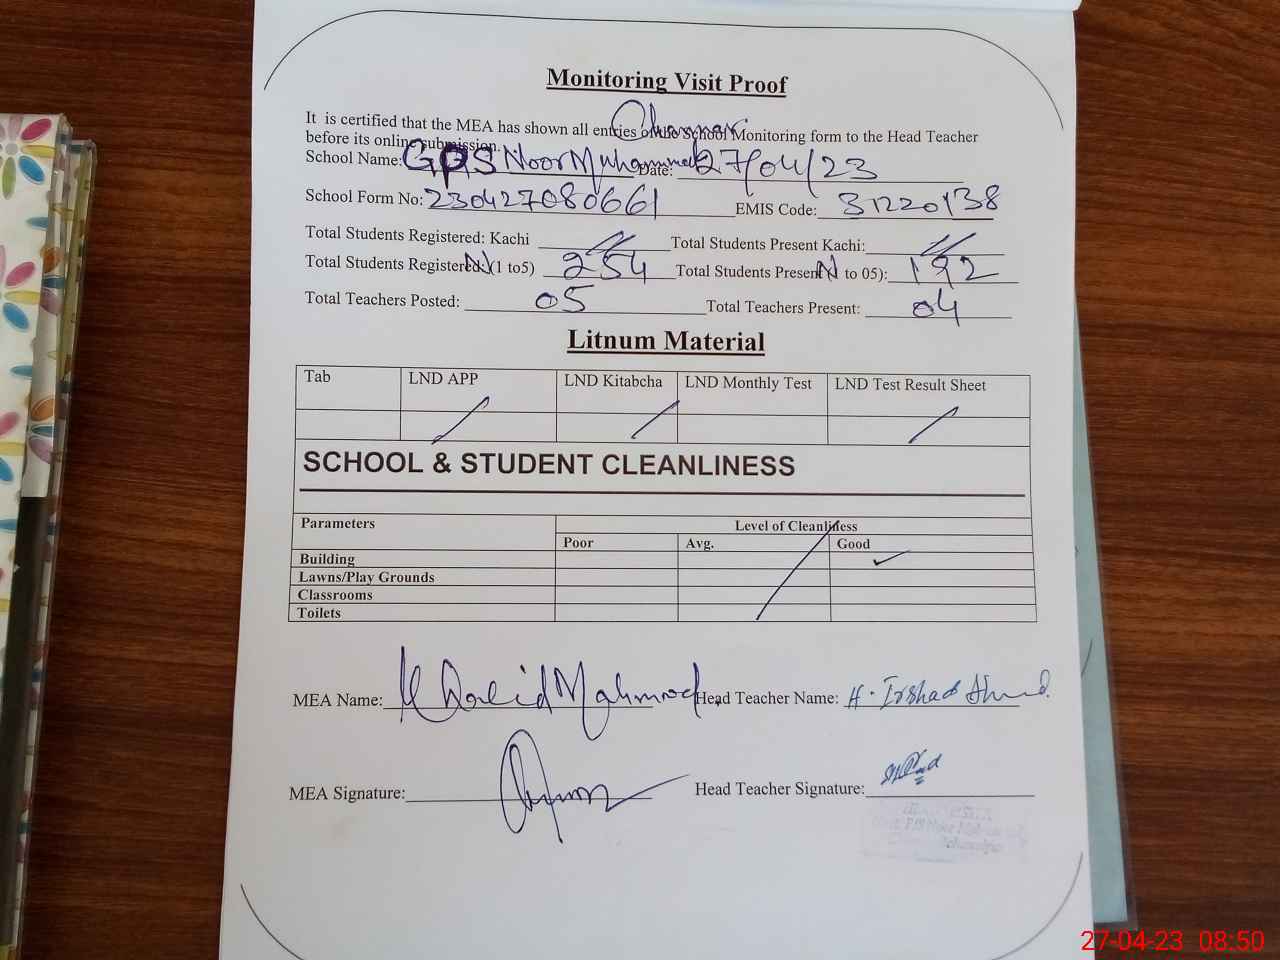 Monitoring Visit Proof
It is certified that the MEA has shown all entries of the School Monitoring form to the Head Teacher
before its online submission.
Channar
School Name: GPS Noor Muhammad Date: 27/04/23
School Form No: 230427080661 EMIS Code: 31220138
Total Students Registered: Kachi Total Students Present Kachi:
Total Students Registered: N (1 to5) 254 Total Students Present N to 05): 192
Total Teachers Posted: 05 Total Teachers Present: 04
Litnum Material
Tab LND APP LND Kitabcha LND Monthly Test LND Test Result Sheet
SCHOOL & STUDENT CLEANLINESS
Parameters Level of Cleanliness
Poor Avg. Good
Building ✓
Lawns/Play Grounds
Classrooms
Toilets
MEA Name: Khalid Mahmood Head Teacher Name: H. Irshad Ahmd.
MEA Signature: Head Teacher Signature:
27-04-23 08:50